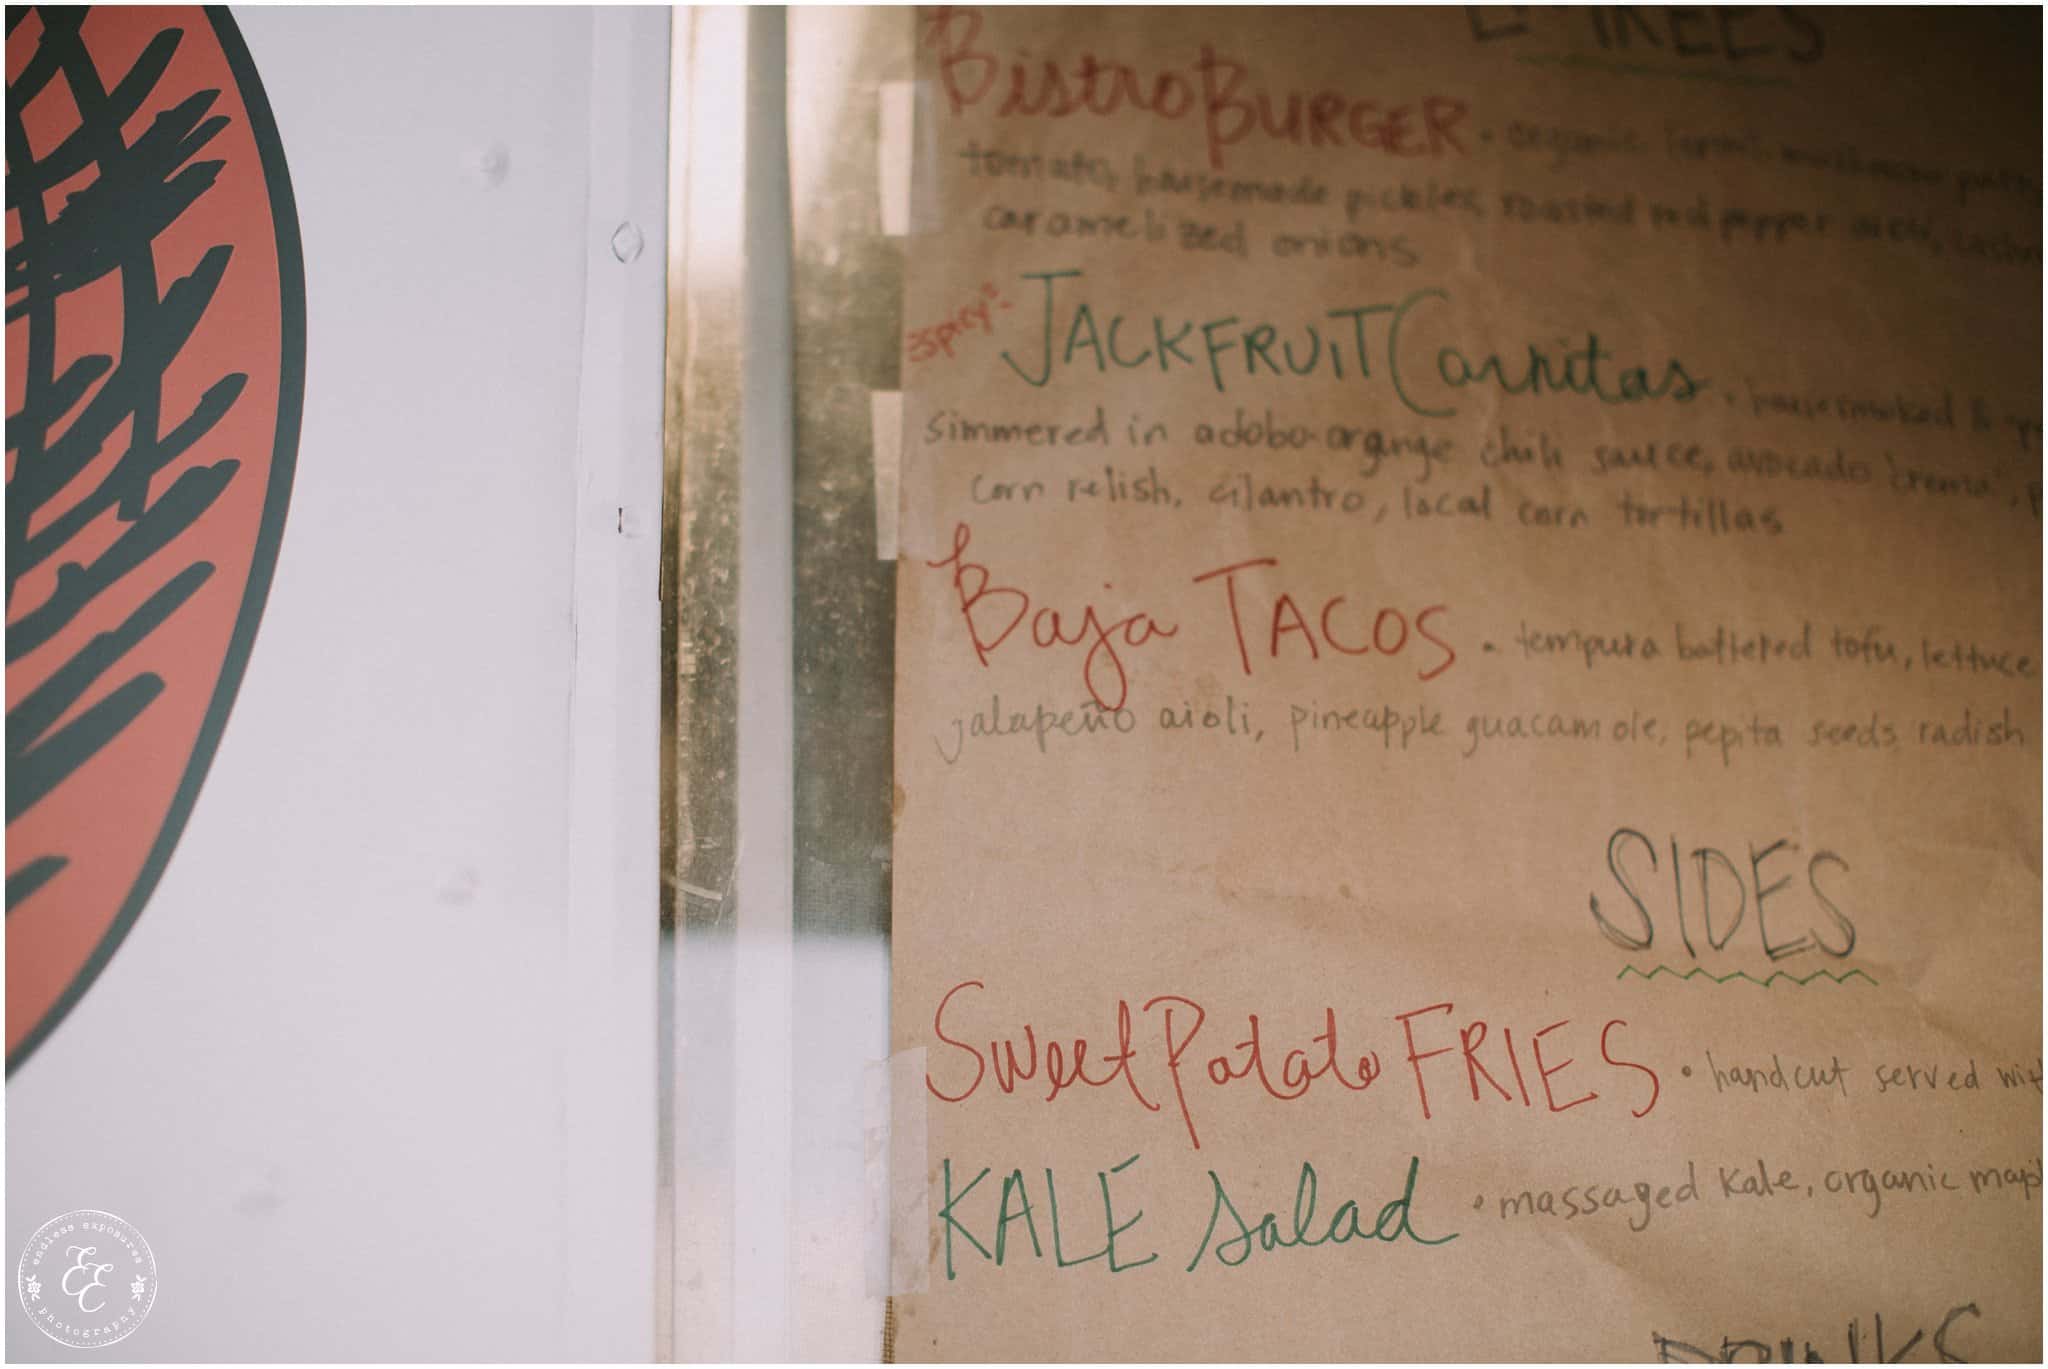 Bistro BURGER • organic
tomato, housemade pickles, roasted red pepper aioli,
caramelized onions
spicy JACKFRUIT Carnitas • housesmoked &
simmered in adobo-orange chili sauce, avocado 'crema',
corn relish, cilantro, local corn tortillas
Baja TACOS • tempura battered tofu, lettuce
jalapeño aioli, pineapple guacamole, pepita seeds, radish
SIDES
Sweet Potato FRIES • handcut served wit
KALE Salad • massaged kale, organic mapl
DRINKS
endless exposures
EE
photography